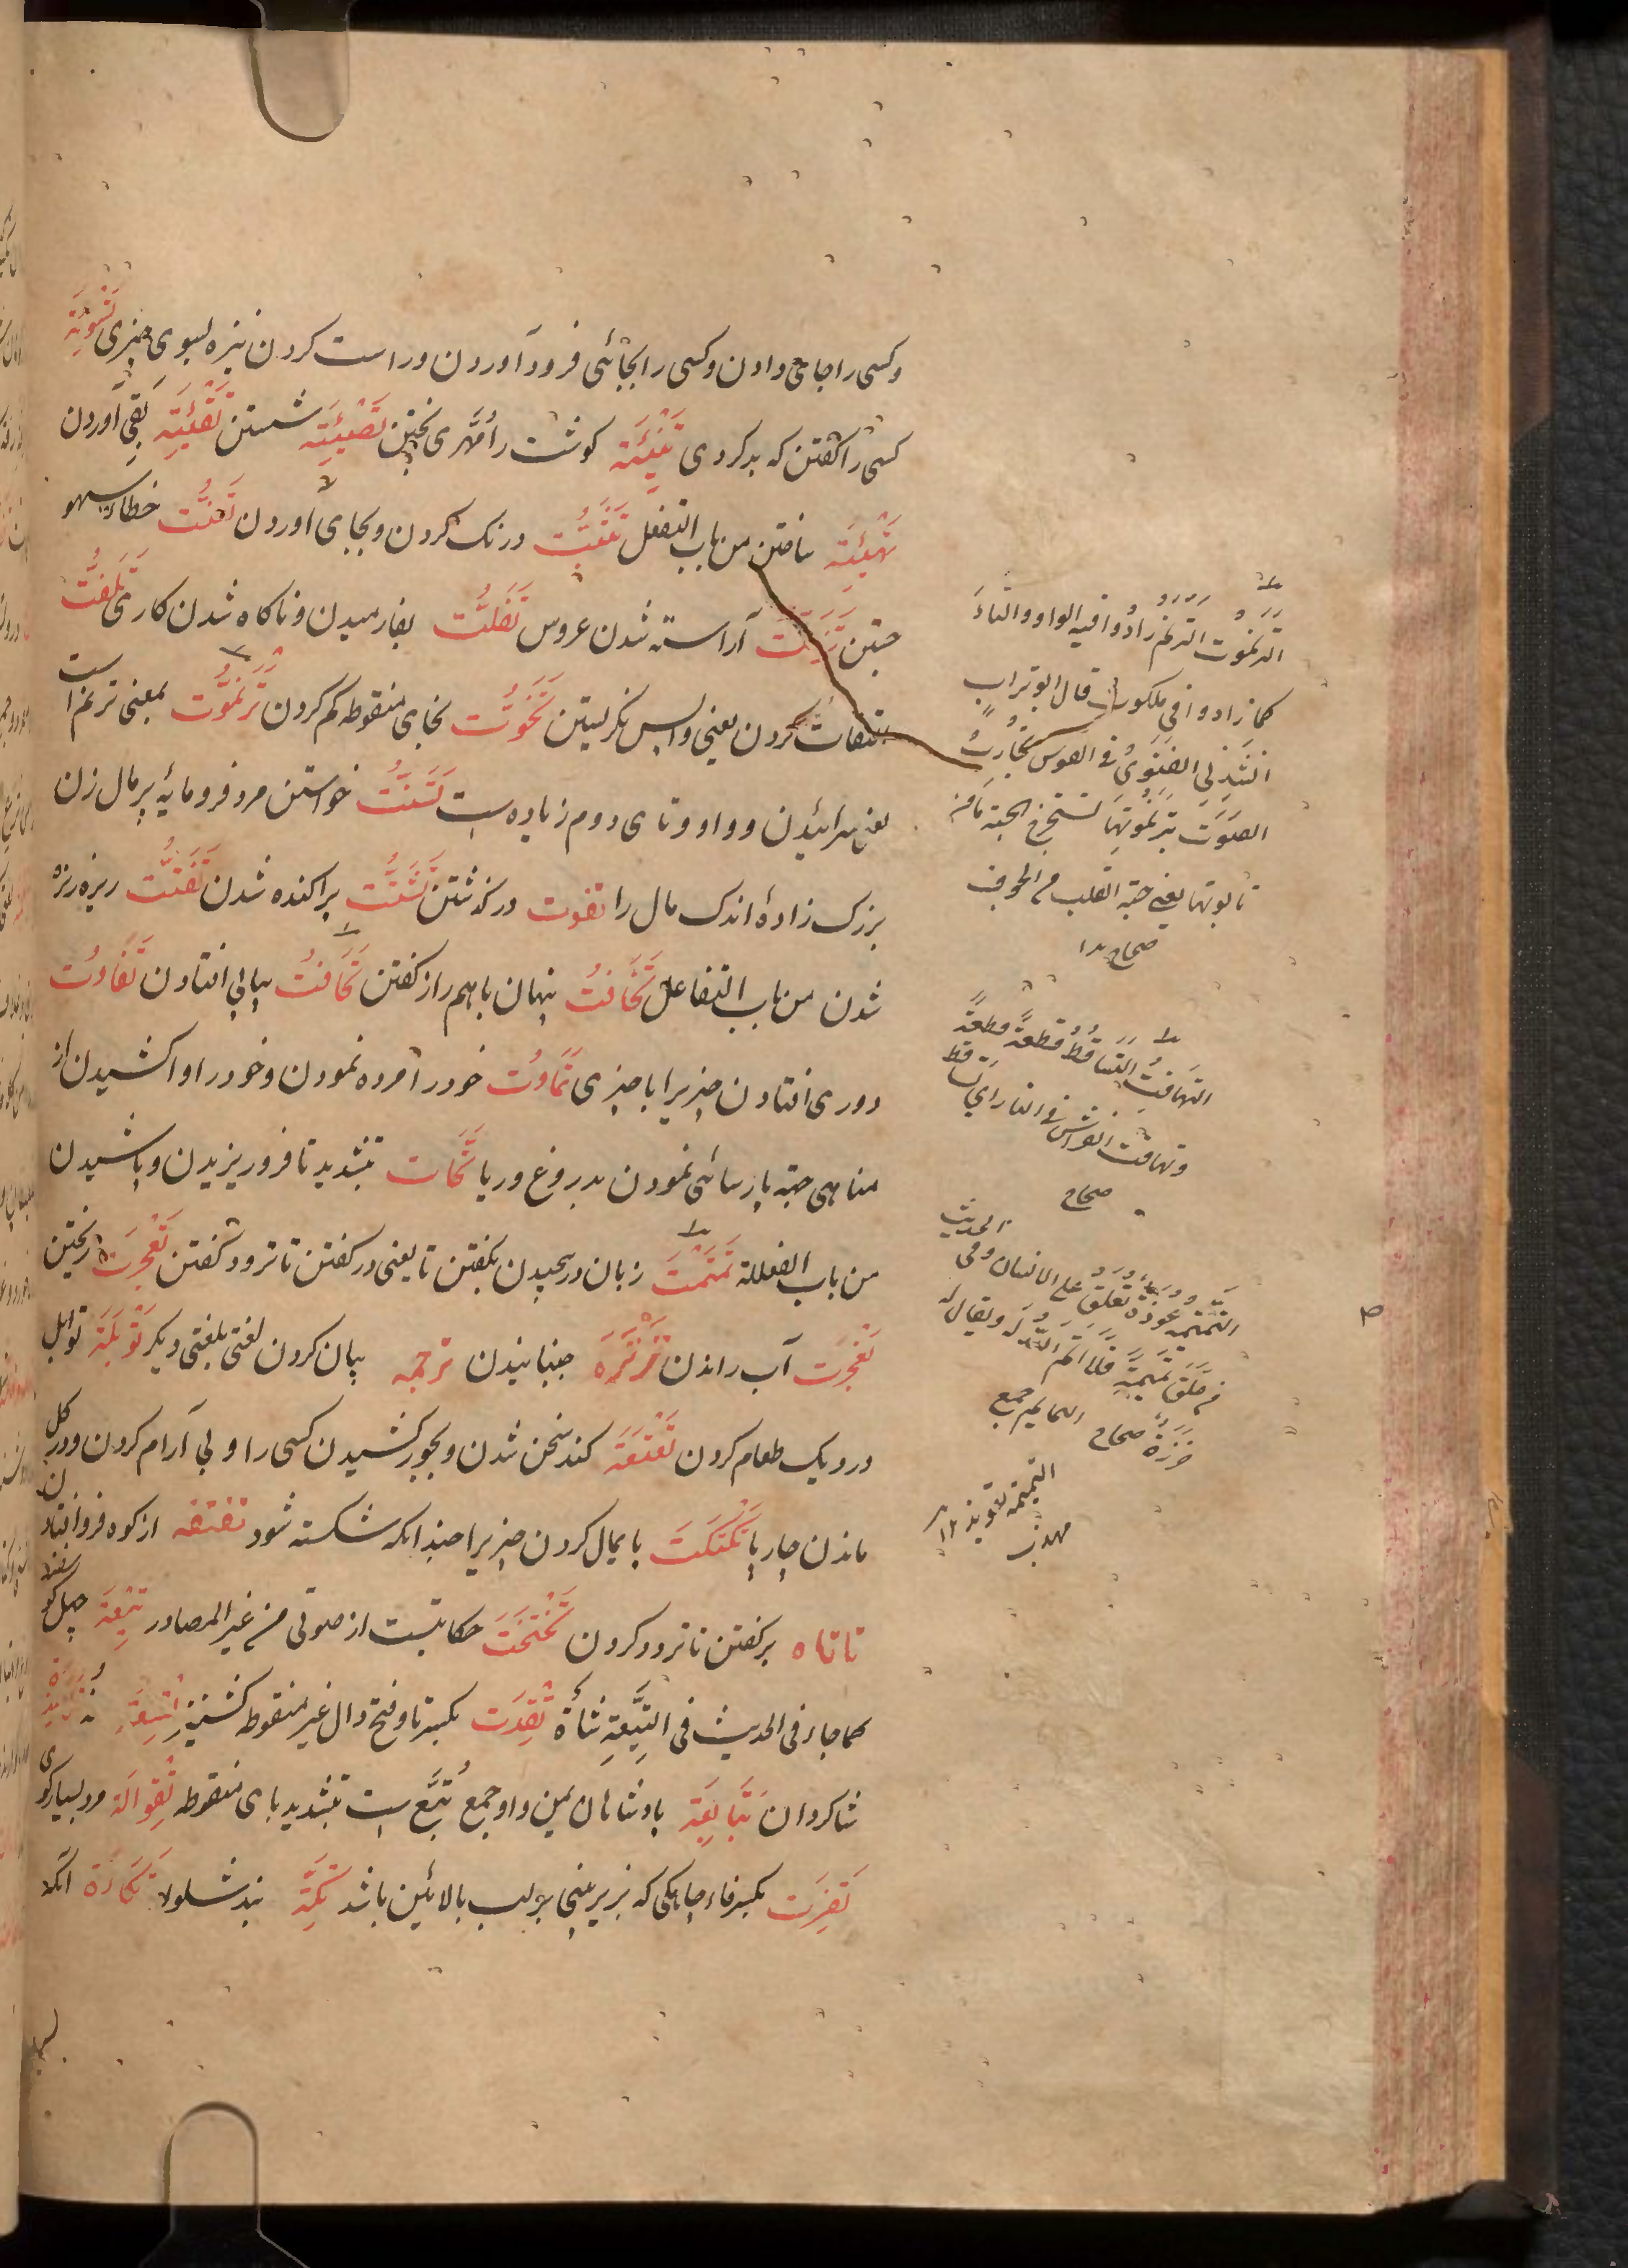 وکسی را جای دادن وکسی را بجائی فرود آوردن و راست کردن نیزه بسوی چیزی تَسْوِئَة
کسی را گفتن که بد کردی تَنْیِئَة گوشت را مُهَری پختن تَصْیِئَة شستن تَقْیِئَة بقی آوردن
تَهْیِئَة ساختن من باب التفعل درنگ کردن و بجای آوردن تَعَنُّت خطا و سهو
جستن تَزَیُّت آراسته شدن عروس تَفَلُّت بفا رمیدن و ناگاه شدن کاری تَلَفُّت
التفات کردن یعنی واپس نگریستن تَخَوُّت بخای منقوطه کم کردن تَرَنْمُوت بمعنی ترنم است
یعنی سرائیدن و واو و تای دوم زیاده ست تَسَنُّت خواستن مرد فرومایه پرمال زن
بزرگ زادهٔ اندک مال را تفوت درگذشتن تَشَتُّت پراکنده شدن تَفَتُّت ریزه ریزه
شدن من باب التفاعل تَخَافُت پنهان باهم راز گفتن تَهَافُت پیاپی افتادن تَفَاوُت
دوری افتادن چیزیرا با چیزی تَمَاوُت خود را مرده نمودن و خود را واکشیدن از
مناهی جهة پارسائی نمودن بدروغ و ریا تَحَات بتشدید تا فروریزیدن و پاشیدن
من باب الفعللة تَمْتَمَت زبان درپیچیدن بگفتن تا یعنی در گفتن تا تردد گفتن ریختن
آب راندن تَرْتَرَه جنبانیدن ترجمه بیان کردن لغتی بلغتی دیگر تَوْبَلَة توابل
در دیگ طعام کردن تَعْتَعَة کند سخن شدن و بجور کشیدن کسی را و بی آرام کردن و در گل
ماندن چارپا تَکْتَکَت پایمال کردن چیزیرا چندانکه شکسته شود تفتفه از کوه فرو افتادن
تاتاه برگفتن تا تردد کردن تَخْتَخَت حکایتست از صوتی من غیر المصادر تِیْعَة چهل گوسفند
کما جاء فی الحدیث فی التِّیْعَةِ شَاةٌ تِقِدَت بکسر تا و فتح دال غیر منقوطه کشنیز
شاکردان تَبَابِعَة بادشاهان یمن و او جمع تُبَّع ست بتشدید بای منقوطه تِقْوَالَة مرد بسیارگوی
تَفِرَت بکسر فاء چاهکی که بزیر بینی بر لب بالائین باشد تِکَّة بند شلوار تُکَاءَة آنکه
التَّرَنْمُوت التَّرَنُّم زادُوا فیه الواو والتاءَ
کما زادوا فی ملکوت قال ابوتراب
انشدنی الغنوی فی القوس تُجاوِبُ
الصَّوتَ بِتَرَنْمُوتِهَا تستخرج الحبة من
تابوتها یعنی حبة القلب من الجوف
صحاح ۱۲
التَّهَافُت التَّسَاقُط قطعةً قطعةً
وتهافت الفراش فی النار ای تساقط
صحاح
التَّمِیمَة عُوذَةٌ تُعَلَّقُ علی الانسان وفی الحدیث
من عَلَّقَ تَمِیمَةً فلا اتم الله له ویقال له
خَرَزَةٌ صحاح التمائم جمع
التمیمة تعویذ ۱۲
مهذب